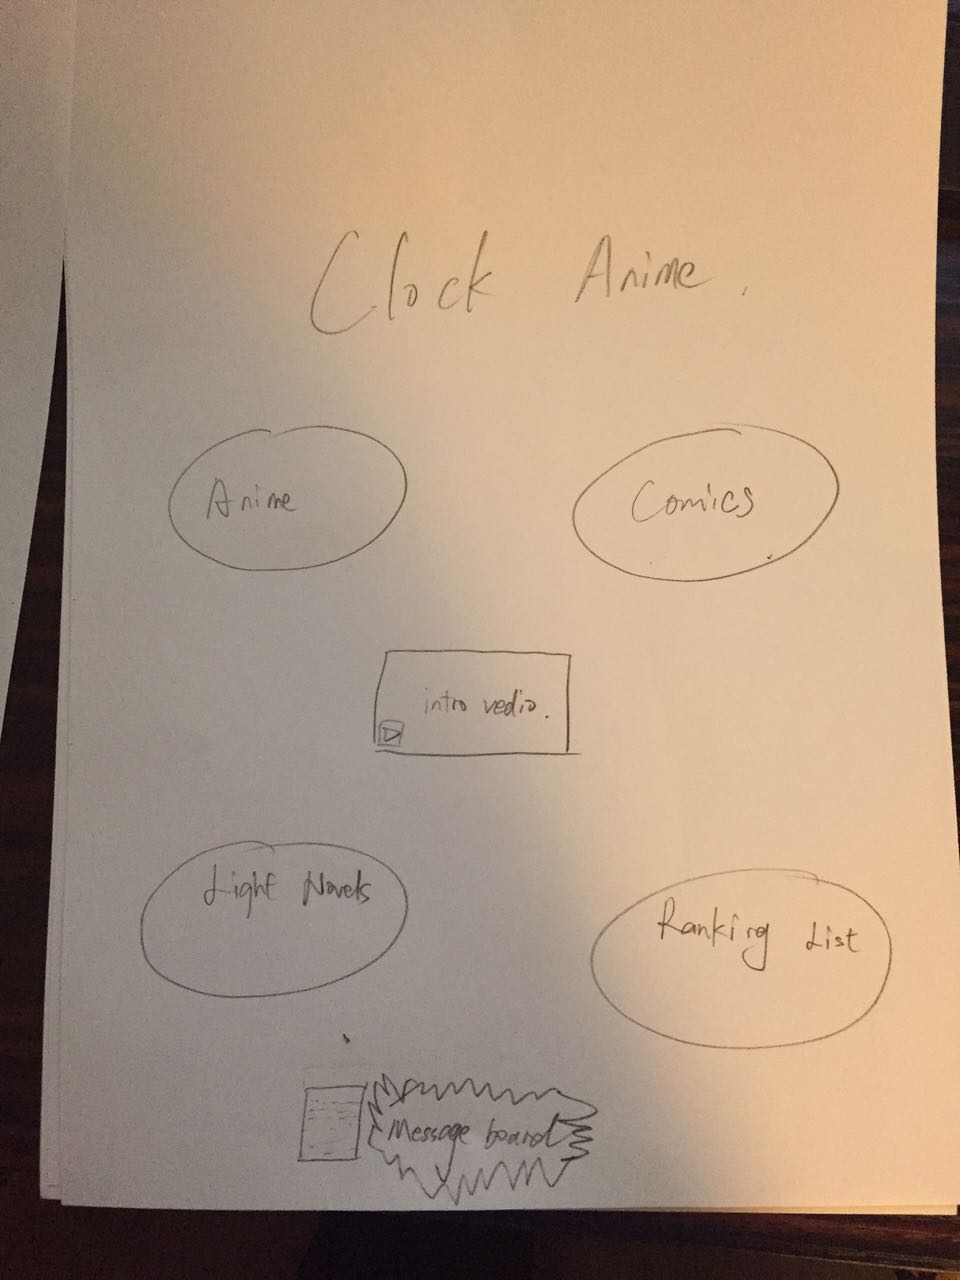 Clock Anime.
Anime
Comics
intro vedio.
Light Novels
Ranking List
Message board